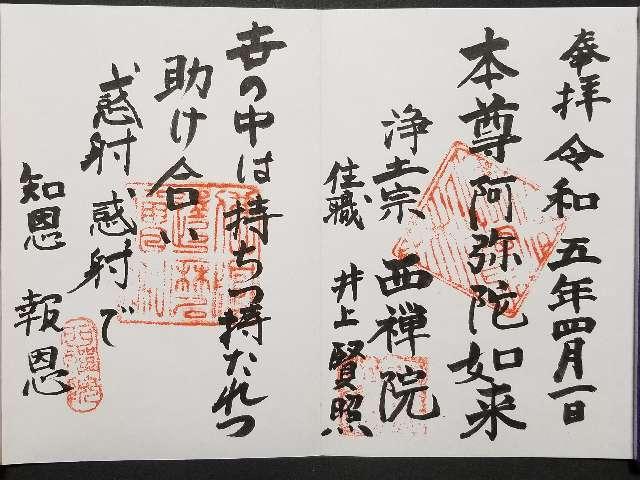 奉拝 令和五年四月一日
本尊 阿弥陀如来
浄土宗 西禅院
住職 井上賢照
世の中は持ちつ持たれつ
助け合い
感射感射で
知恩 報恩